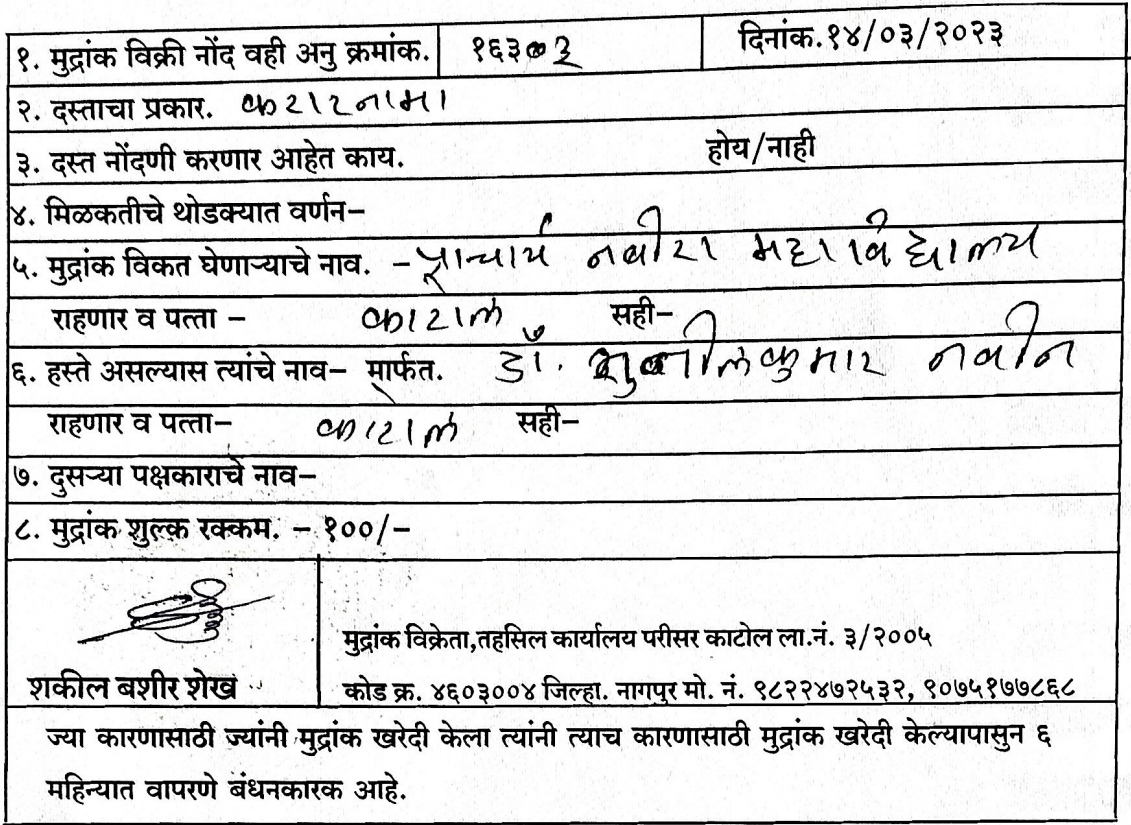 १. मुद्रांक विक्री नोंद वही अनु क्रमांक. १६३०३ दिनांक.१४/०३/२०२३
२. दस्ताचा प्रकार. करारनामा
३. दस्त नोंदणी करणार आहेत काय. होय/नाही
४. मिळकतीचे थोडक्यात वर्णन–
५. मुद्रांक विकत घेणाऱ्याचे नाव. – प्राचार्य नबीरा महाविद्यालय
राहणार व पत्ता – काटोल सही–
६. हस्ते असल्यास त्यांचे नाव– मार्फत. डॉ. सुनीलकुमार नवीन
राहणार व पत्ता– काटोल सही–
७. दुसऱ्या पक्षकाराचे नाव–
८. मुद्रांक शुल्क रक्कम. – १००/–
मुद्रांक विक्रेता,तहसिल कार्यालय परीसर काटोल ला.नं. ३/२००५
शकील बशीर शेख कोड क्र. ४६०३००४ जिल्हा. नागपुर मो. नं. ९८२२४७२५३२, ९०७५१७७८६८
ज्या कारणासाठी ज्यांनी मुद्रांक खरेदी केला त्यांनी त्याच कारणासाठी मुद्रांक खरेदी केल्यापासुन ६
महिन्यात वापरणे बंधनकारक आहे.